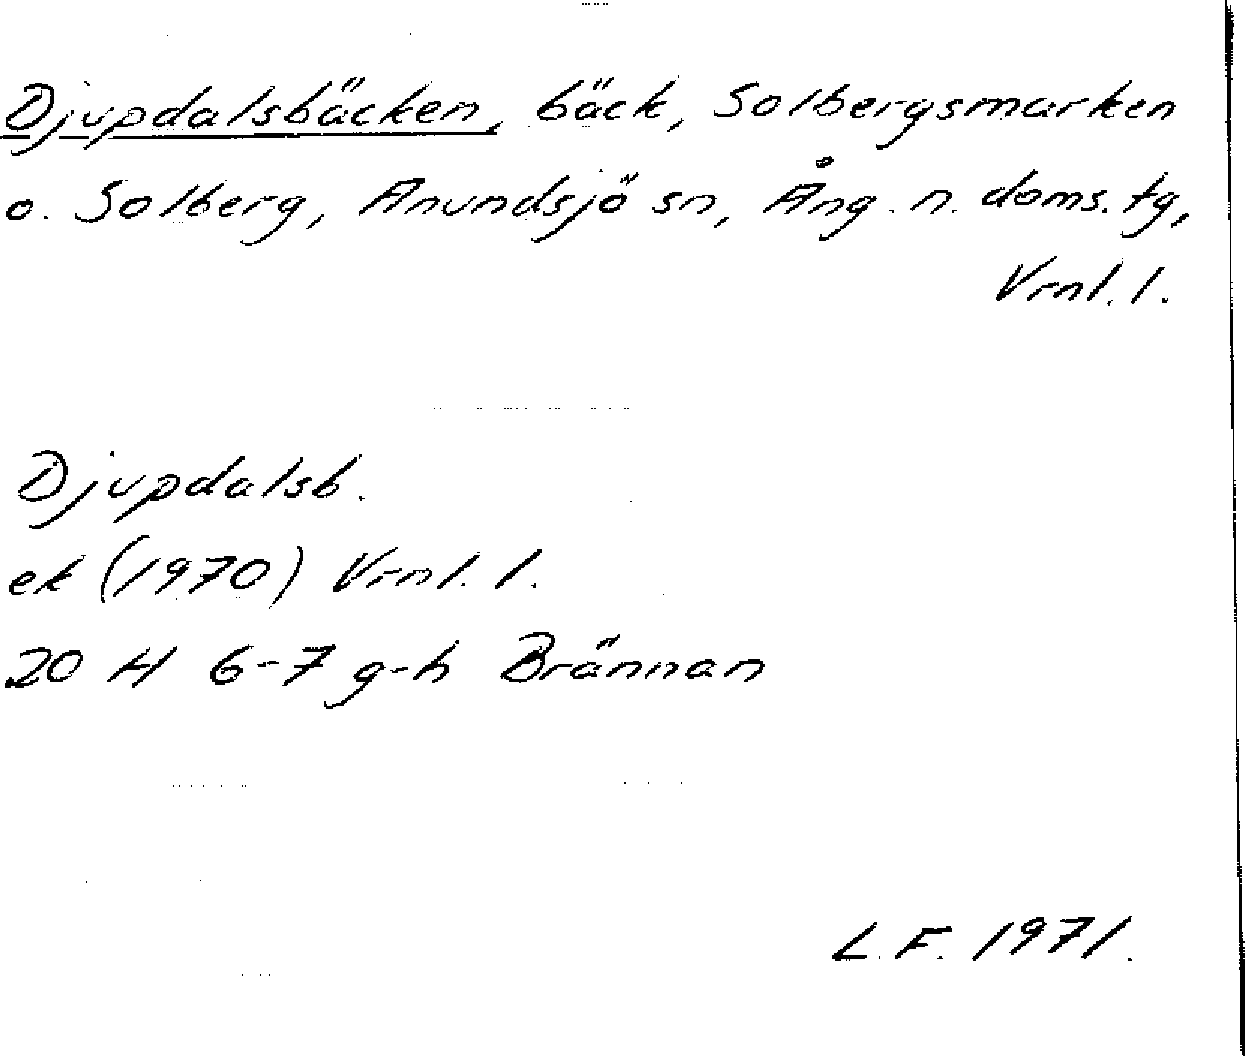 Djupdalsbäcken, bäck, Solbergsmarken
o. Solberg, Anundsjö sn, Ång. n. doms. tg,
Vrnl. l.
Djupdalsb.
ek (1970) Vrnl. l.
20 H 6-7 g-h Brännan
L.F. 1971.